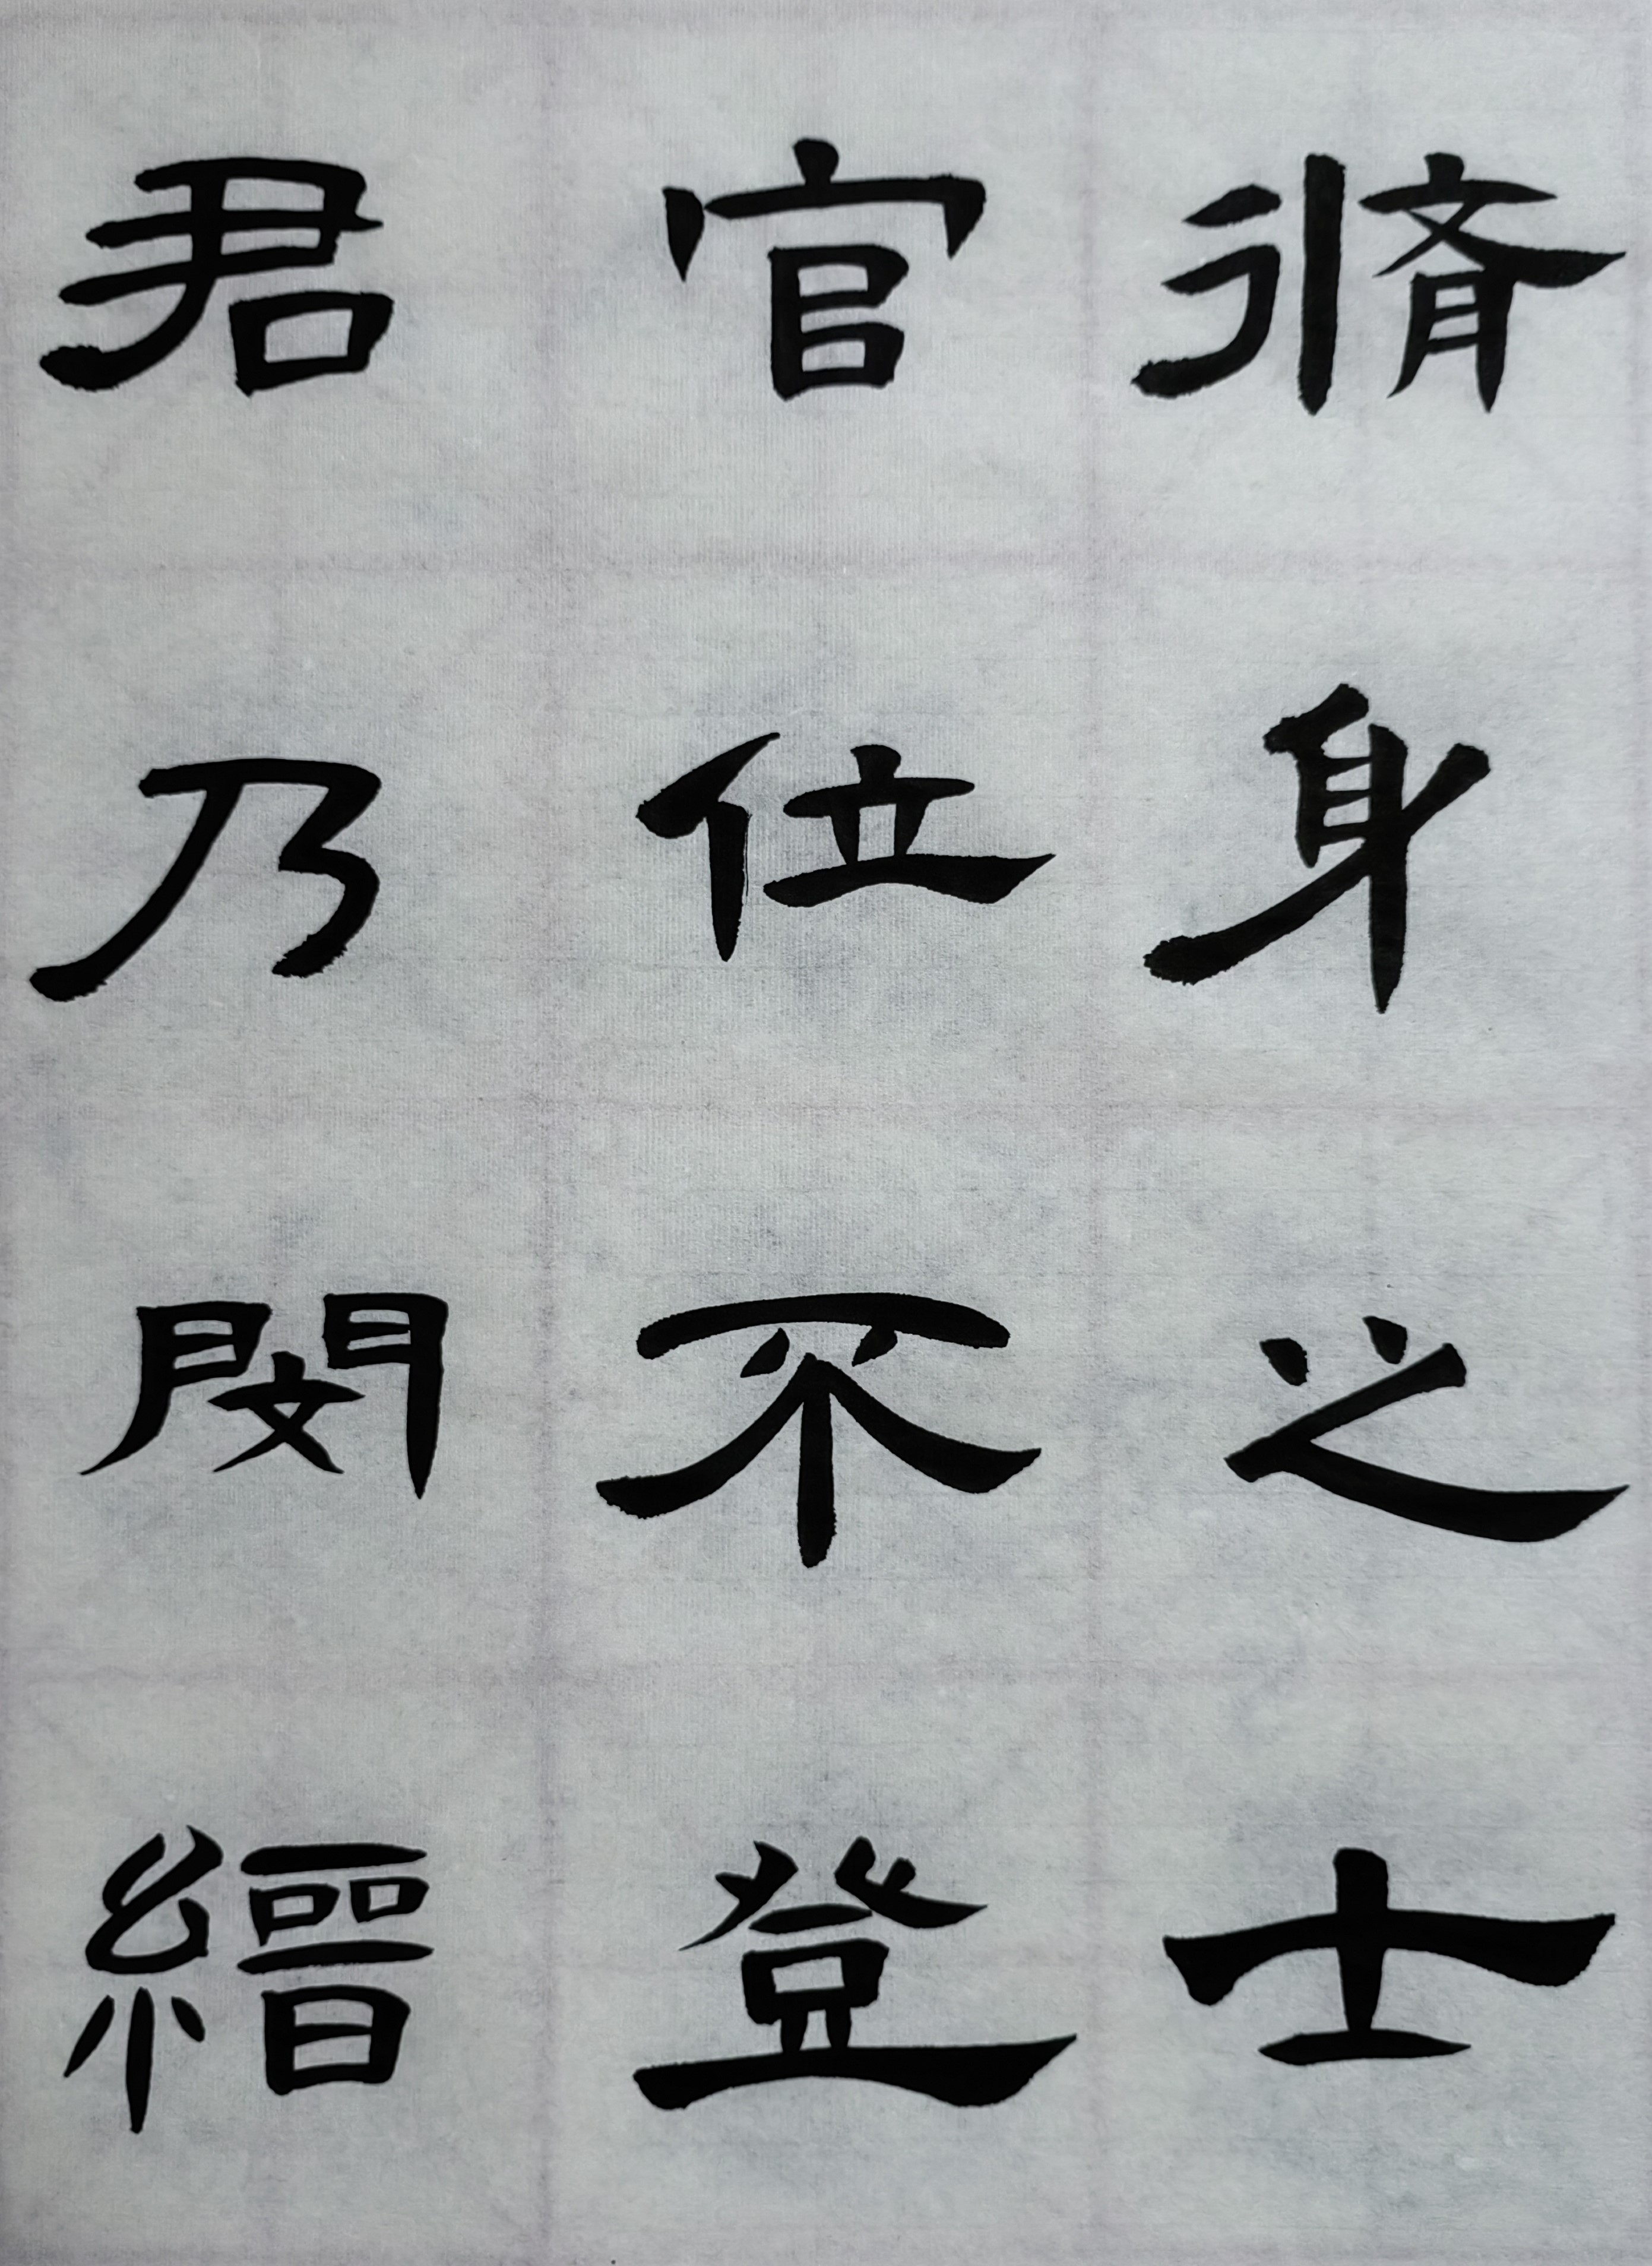 脩身之士
官位不登
君乃閔縉